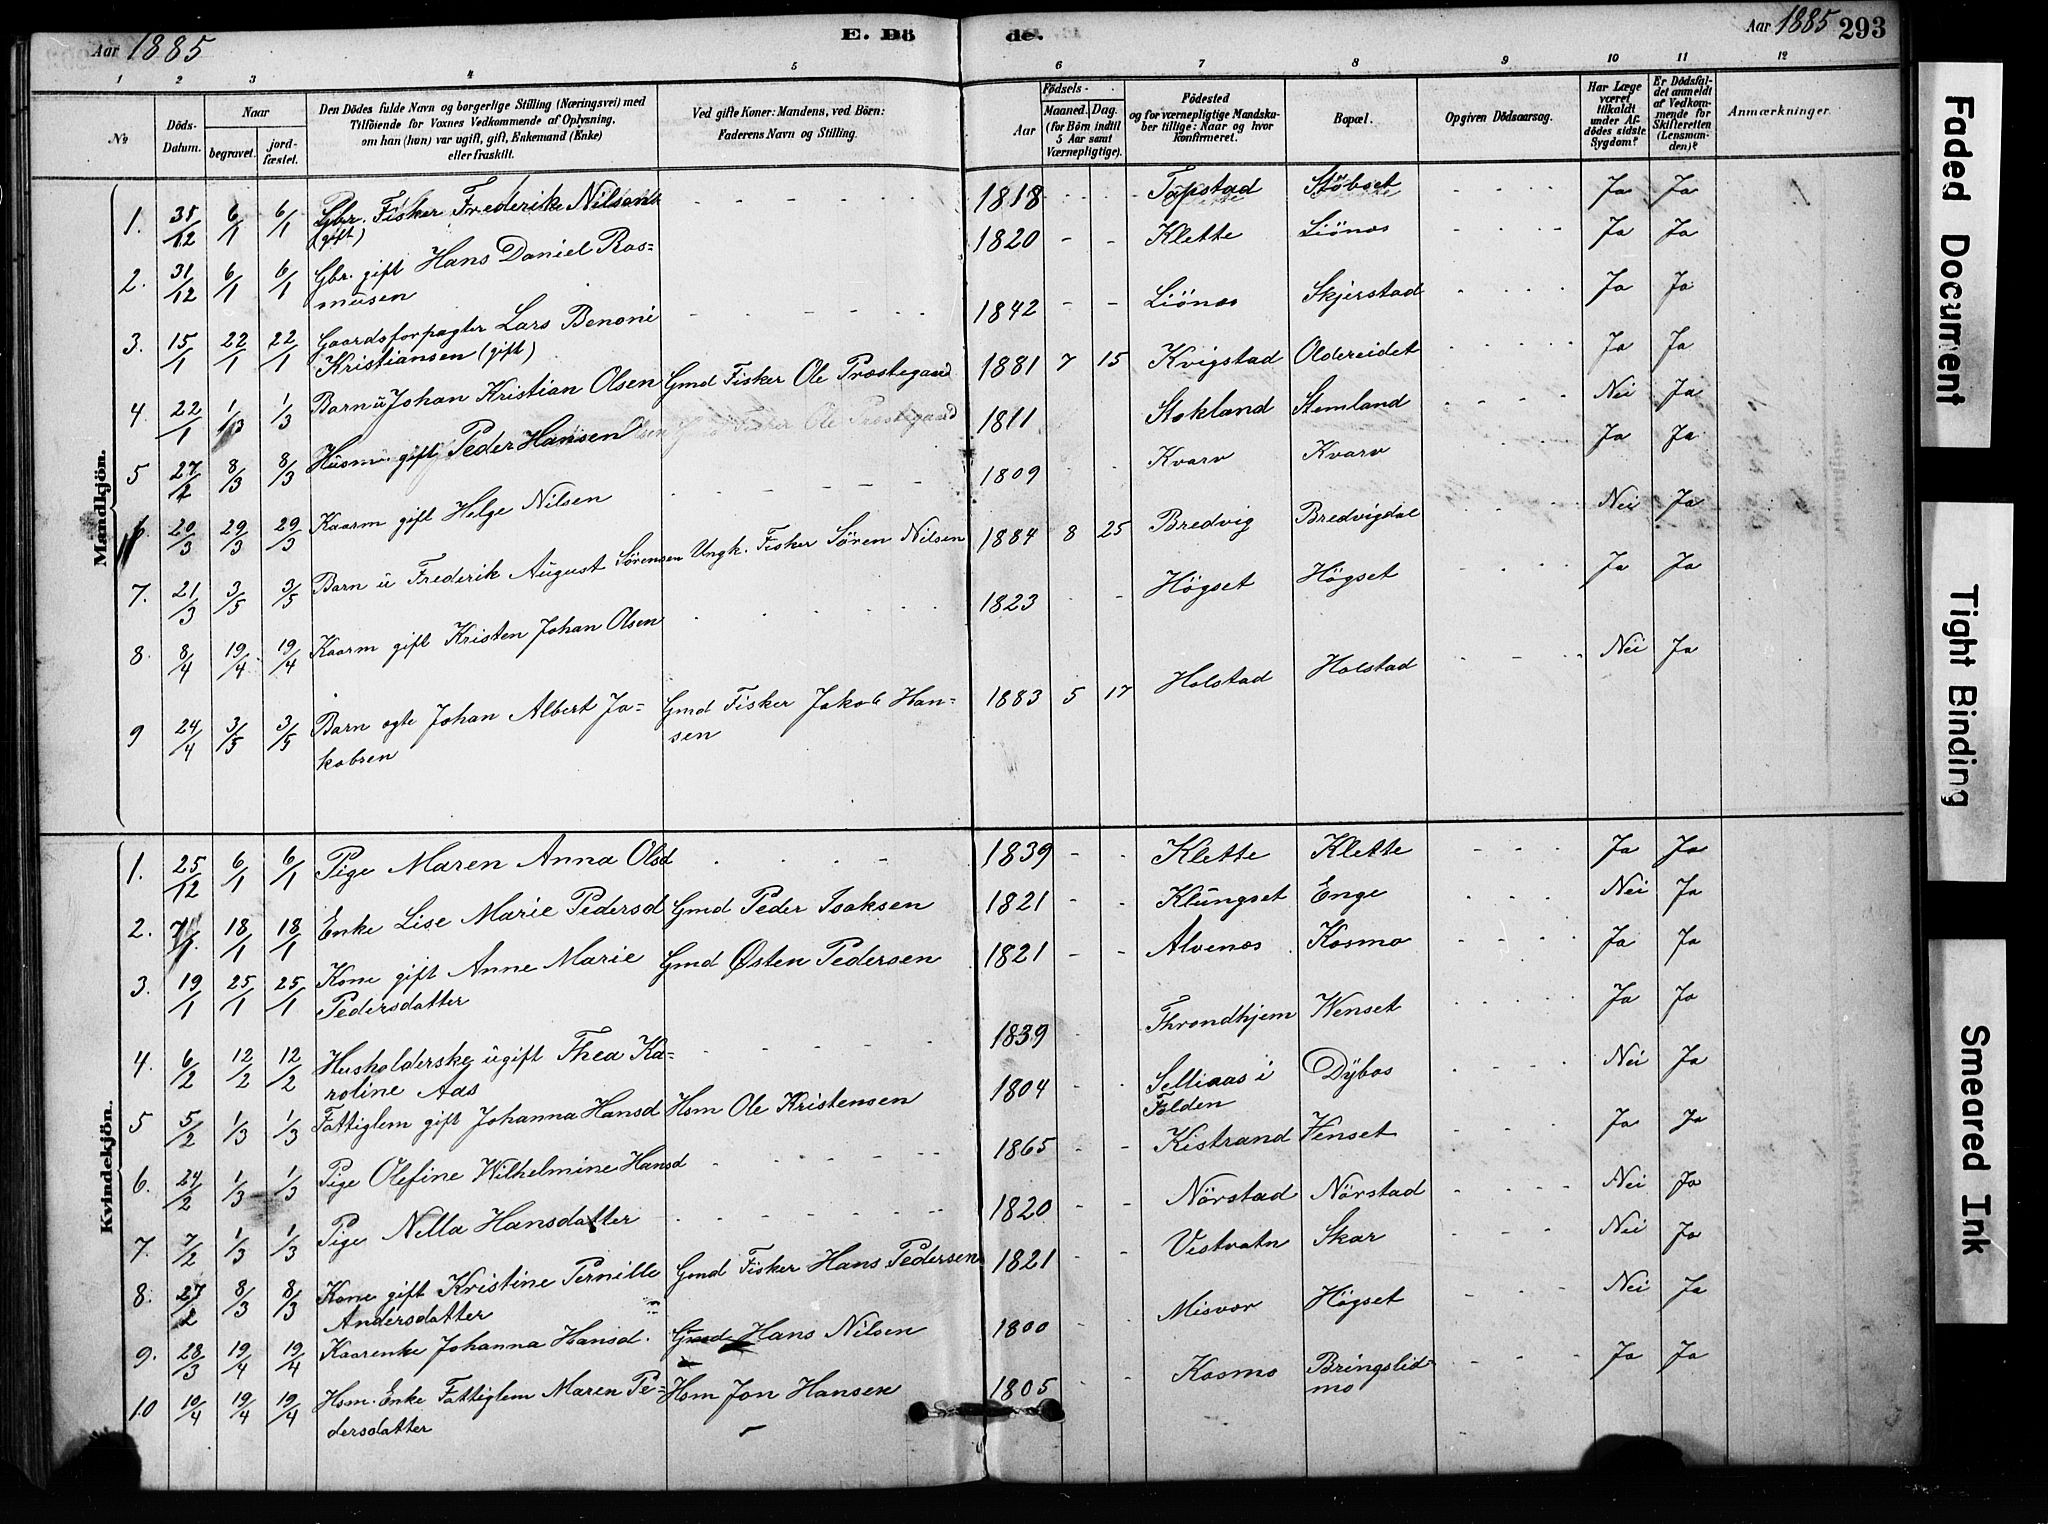 Aar 1885
E. Dö
de.
Aar 1885 293
1 2 3 4 5 6 7 8 9 10 11 12
№
Döds-Datum.
Naar begravet. jordfæstet.
Den Dödes fulde Navn og borgerlige Stilling (Næringsvei) med
Tilföiende for Voxnes Vedkommende af Oplysning,
om han (hun) var ugift, gift, Enkemand (Enke)
eller fraskilt.
Ved gifte Koner: Mandens, ved Börn:
Faderens Navn og Stilling.
Födsels-
Aar Maaned. Dag.
(for Börn indtil
5 Aar samt
Værnepligtige).
Födested
og for værnepligtige Mandska-
ber tillige: Naar og hvor
konfirmeret.
Bopæl.
Opgiven Dödsaarsag.
Har Læge
været
tilkaldt
under Af-
dödes sidste
Sygdom?
Er Dödsfal-
det anmeldt
af Vedkom-
mende for
Skifteretten
(Lensman-
den)?
Anmærkninger.
Mandkjön.
1. 6/1 6/1 Gbr. Fisker Frederik Nilsen (gift) 1818 Støbset Ja Ja
2. 31/12 6/1 6/1 Gbr. gift Hans Daniel Ras-
musen 1820 Klette Liönes Ja Ja
3. 15/1 22/1 22/1 Gaardsforpagter Lars Benoni
Kristiansen (gift) 1842 Liönes Skjerstad Ja Ja
4. 22/1 1/3 1/3 Barn u Johan Kristian Olsen Gmd Fisker Ole Præstegaard 1881 7 15 Kvigstad Oldereidet Ja Ja
5 27/2 8/3 8/3 Husm. gift Peder Hansen 1811 Stokland Stemland Nei Ja
6 20/3 29/3 29/3 Kaarm gift Helge Nilsen 1809 Kvarv Kvarv Ja Ja
7. 21/3 3/5 3/5 Barn u Frederik August Sörensen Ungk. Fisker Sören Nilsen 1884 8 25 Bredvig Bredvigdal Nei Ja
8. 8/4 19/4 19/4 Kaarm gift Kristen Johan Olsen 1823 Högset Högset Ja Ja
9 24/4 3/5 3/5 Barn ægte Johan Albert Ja-
kobsen Gmd Fisker Jakob Han-
sen 1883 5 17 Holstad Holstad Nei Ja
Kvindekjön.
1. 25/12 6/1 6/1 Pige Maren Anna Olsd 1839 Klette Klette Ja Ja
2. 7/1 18/1 18/1 Enke Lise Marie Pedersd Gmd Peder Isaksen 1821 Klungset Enge Nei Ja
3. 19/1 25/1 25/1 Kone gift Anne Marie
Pedersdatter Gmd Østen Pedersen 1821 Alvenes Kosmo Ja Ja
4. 6/2 12/2 12/2 Husholderske ugift Thea Ka-
roline Aas 1839 Throndhjem Wenset Ja Ja
5 5/2 1/3 1/3 Fattiglem gift Johanna Hansd Hsm Ole Kristensen 1804 i
Folden Dybos Nei Ja
6. 24/2 1/3 1/3 Pige Olefine Wilhelmine Hansd 1865 Kistrand Venset Ja Ja
7. 7/2 1/3 1/3 Pige Nella Hansdatter 1820 Nörstad Nörstad Nei Ja
8. 27/2 8/3 8/3 Kone gift Kristine Pernille
Andersdatter Gmd Fisker Hans Pedersen 1821 Vestvatn Skar Nei Ja
9. 28/3 19/4 19/4 Kaarenke Johanna Hansd. Gmd Hans Nilsen 1800 Misvær Högset Nei Ja
10 10/4 19/4 19/4 Hsm. Enke Fattiglem Maren Pe-
dersdatter Hsm Jon Hansen 1805 Kosmo Bringslid-
mo Ja Ja
Faded Document
Tight Binding
Smeared Ink